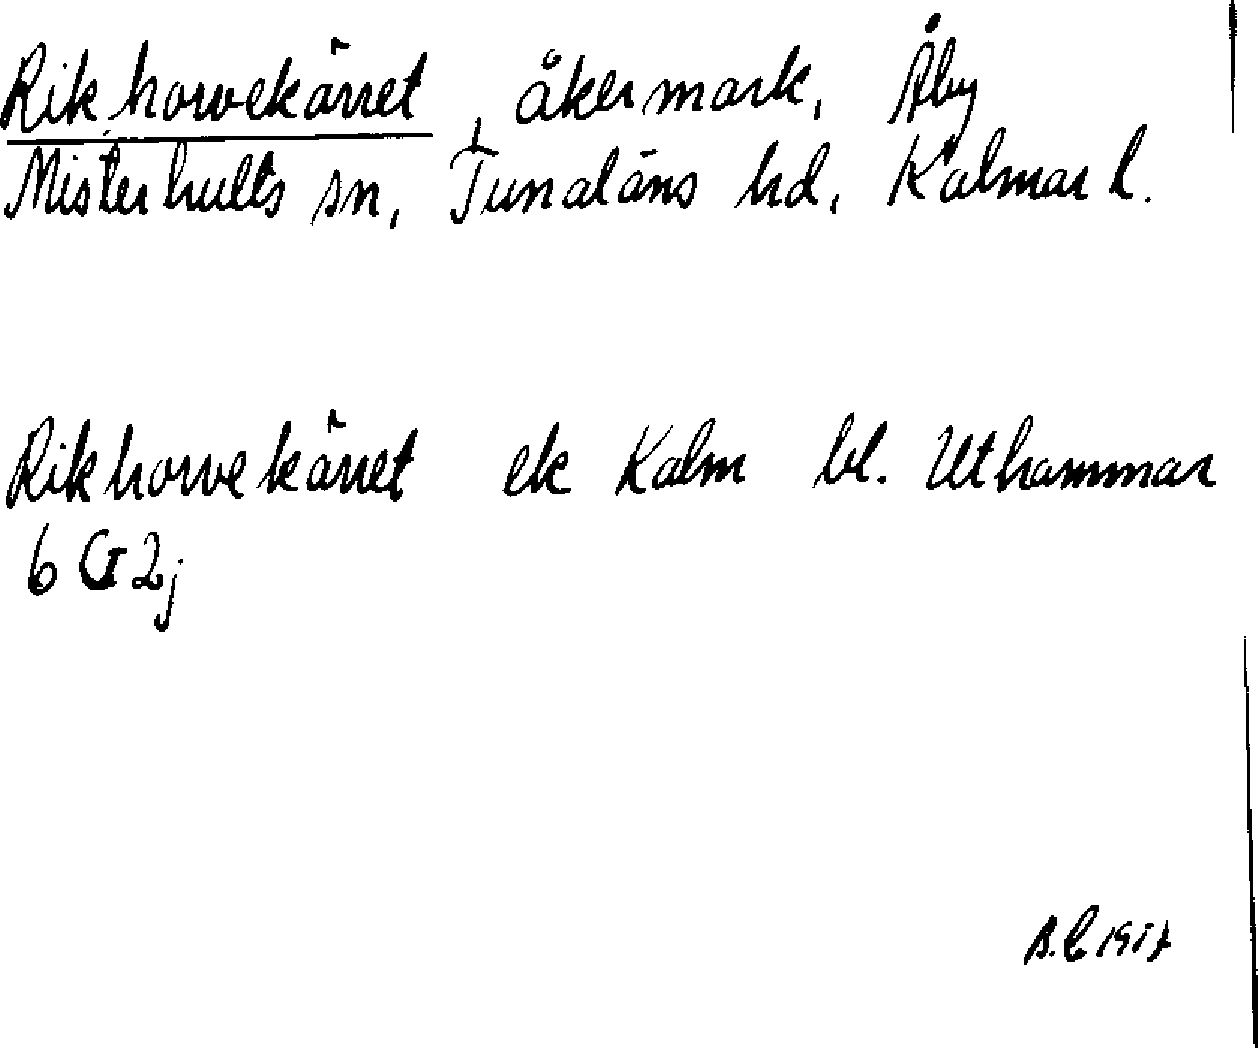 Rikhorvekärret, åkermark, Åby
Misterhults sn, Tunaläns hd, Kalmar l.
Rikhorvekärret ek Kalm bl. Uthammar
6 G 2j